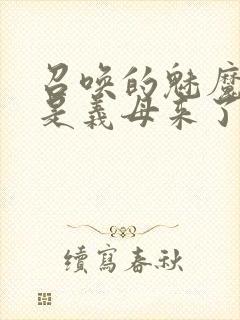 召喚的魅魔
是義母来了
續寫春秋